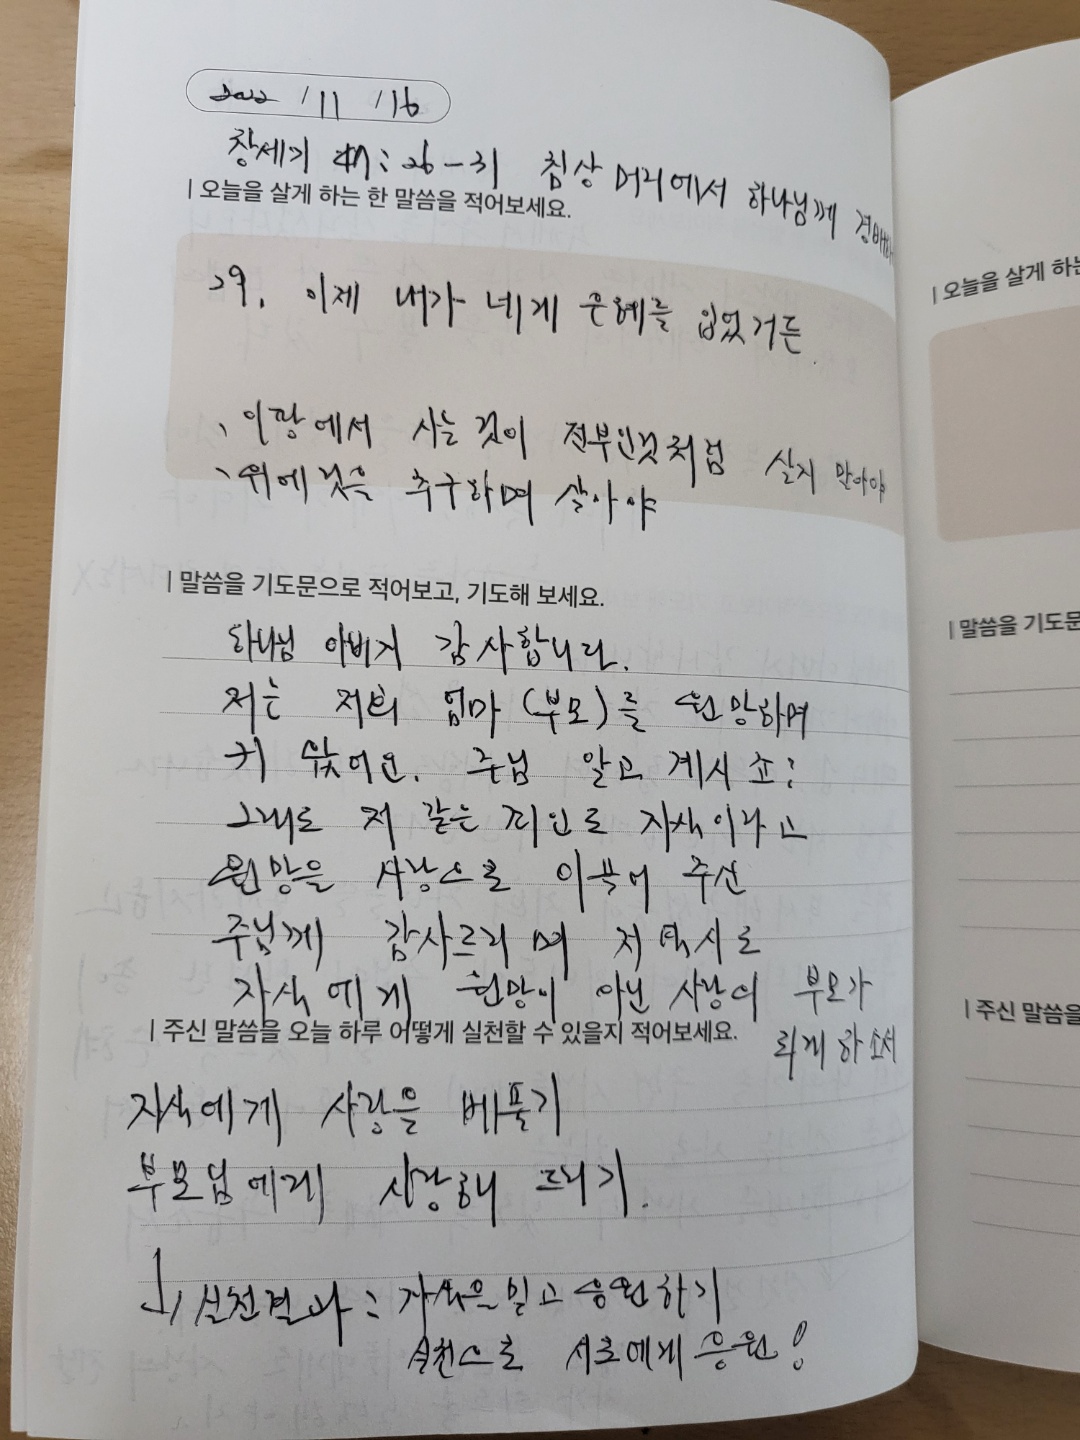 2022 / 11 / 16
창세기 47:26-31 침상 머리에서 하나님께 경배하
| 오늘을 살게 하는 한 말씀을 적어보세요.
29. 이제 내가 네게 은혜를 입었거든
、이땅에서 사는 것이 전부인것처럼 살지 말아야
、위에것을 추구하며 살아야
| 말씀을 기도문으로 적어보고, 기도해 보세요.
하나님 아버지 감사합니다.
저는 저희 엄마(부모)를 원망하며
커 왔어요. 주님 알고 계시죠?
그래도 저 같은 죄인도 자식이라고
원망을 사랑으로 이끌어 주신
주님께 감사드리며 저 역시도
자식에게 원망이 아닌 사랑의 부모가
되게 하소서
| 주신 말씀을 오늘 하루 어떻게 실천할 수 있을지 적어보세요.
자식에게 사랑을 베풀기
부모님에게 사랑해 드리기.
실천결과 : 자식을 믿고 응원하기
실천으로 서로에게 응원!
| 오늘을 살게 하는
| 말씀을 기도문
| 주신 말씀을